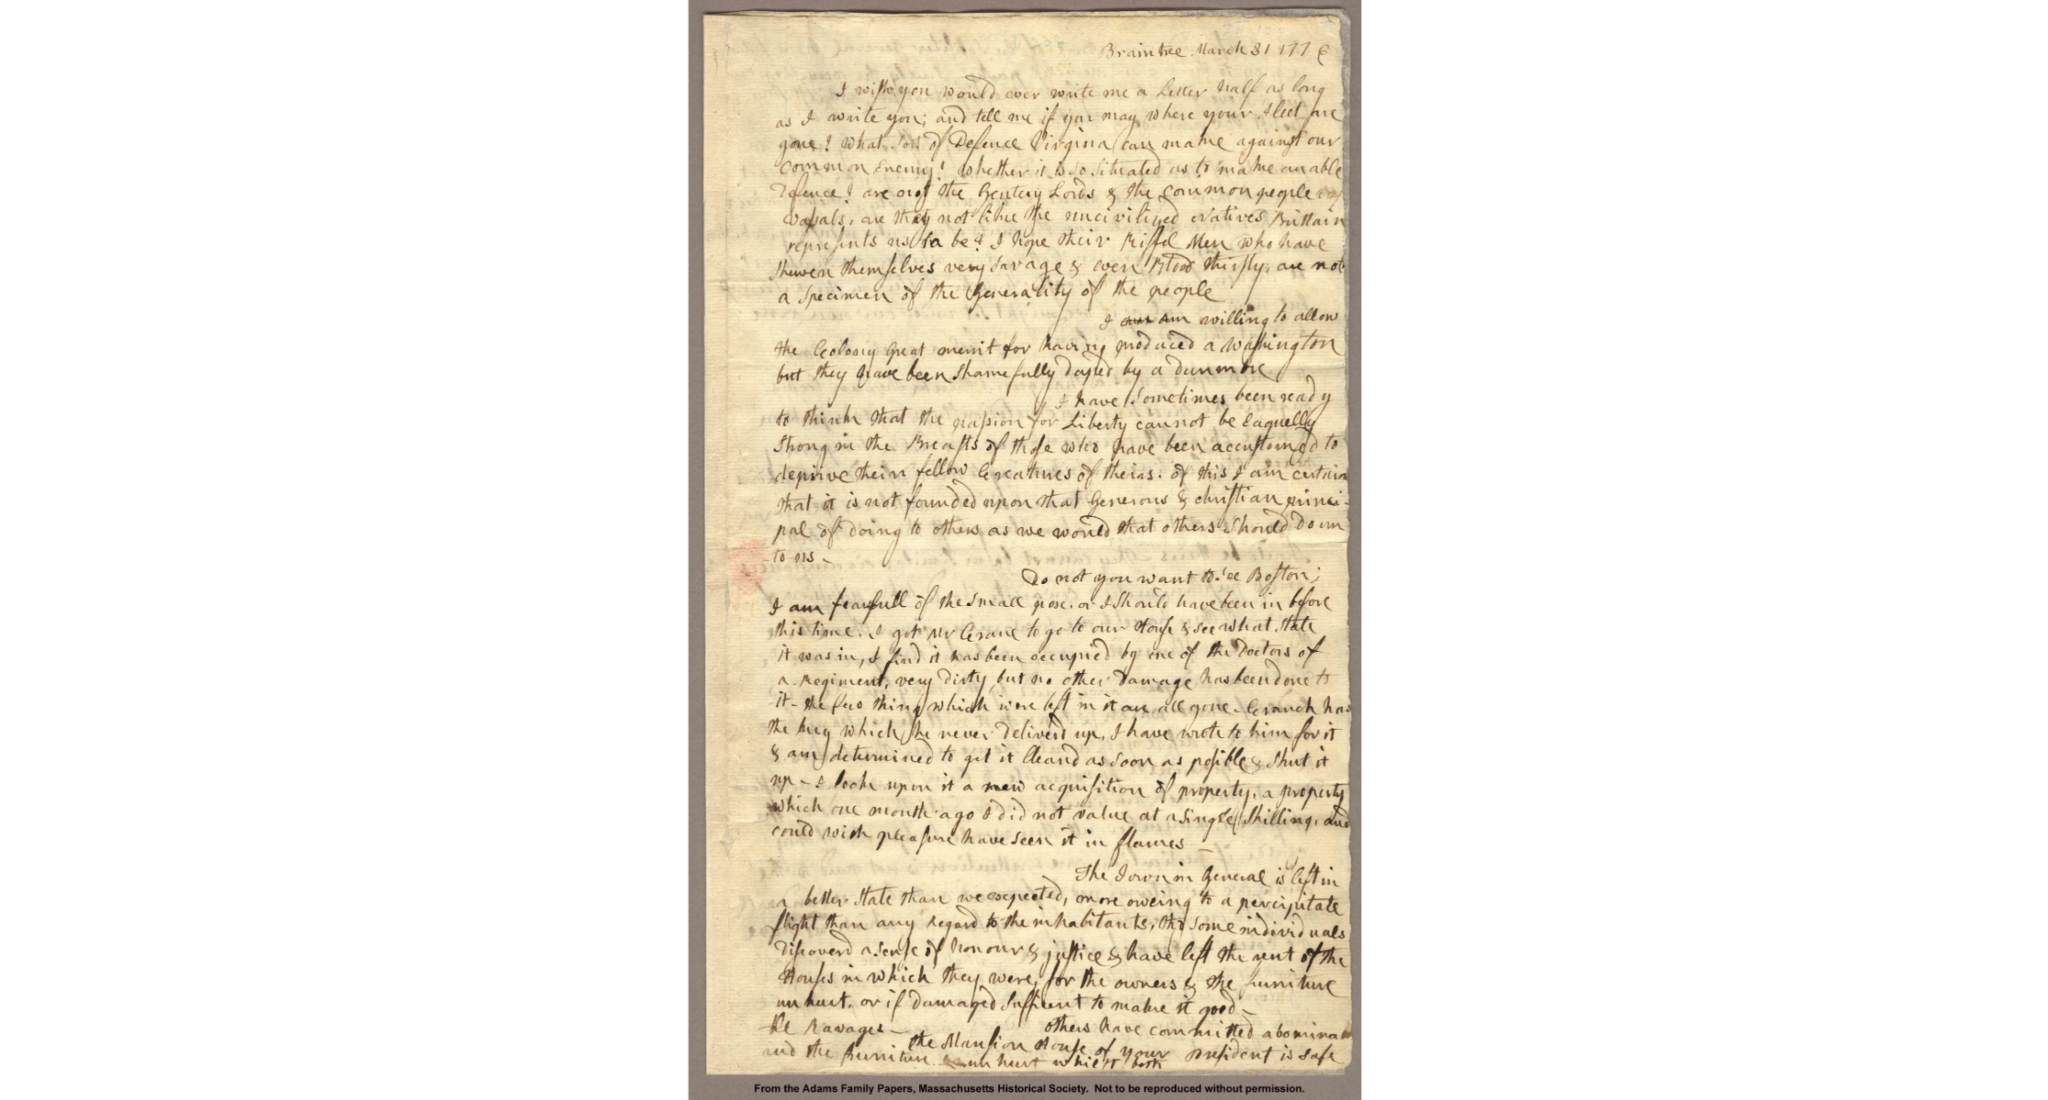 Braintree March 31 1776
I wish you would ever write me a Letter half as long
as I write you; and tell me if you may where your Fleet are
gone? What sort of Defence Virginia can make against our
common Enemy? Whether it is so situated as to make an able
Defence? are not the Gentery Lords & the common people
vassals, are they not like the uncivilized Natives Brittain
represents us to be? I hope their Riffel Men who have
shewen themselves very savage & even Blood thirsty; are not
a specimen of the Generality of the people
I am willing to allow
the Colony great merrit for having produced a Washington
but they have been shamefully duped by a Dunmore
I have sometimes been ready
to think that the passion for Liberty cannot be Eaquelly
Strong in the Breasts of those who have been accustomed to
deprive their fellow Creatures of theirs. of this I am certain
that it is not founded upon that Generous & christian princi-
pal of doing to others as we would that others should do un
to us -
Do not you want to see Boston;
I am fearfull of the small pox. or I should have been in before
this time. I got Mr Crane to go to our House & see what state
it was in, I find it has been occupied by one of the Doctors of
a Regiment, very dirty, but no other damage has been done to
it - the few things which were left in it are all gone - Cranch has
the key which he never deliverd up, I have wrote to him for it
& am determined to get it cleand as soon as posible & shut it
up - I look upon it a new acquisition of property, a property
which one month ago I did not value at a single Shilling, and
could with pleasure have seen it in flames -
The Town in General is left in
a better state than we expected, more oweing to a percipitate
flight than any Regard to the inhabitants, tho some individuals
discoverd a sense of honour & justice & have left the rent of the
Houses in which they were, for the owners & the furniture
unhurt. or if damaged sufficent to make it good -
others have committed abomina
ble Ravages -
the Mansion House of your president is safe
and the furniture unhurt whilst both
From the Adams Family Papers, Massachusetts Historical Society. Not to be reproduced without permission.